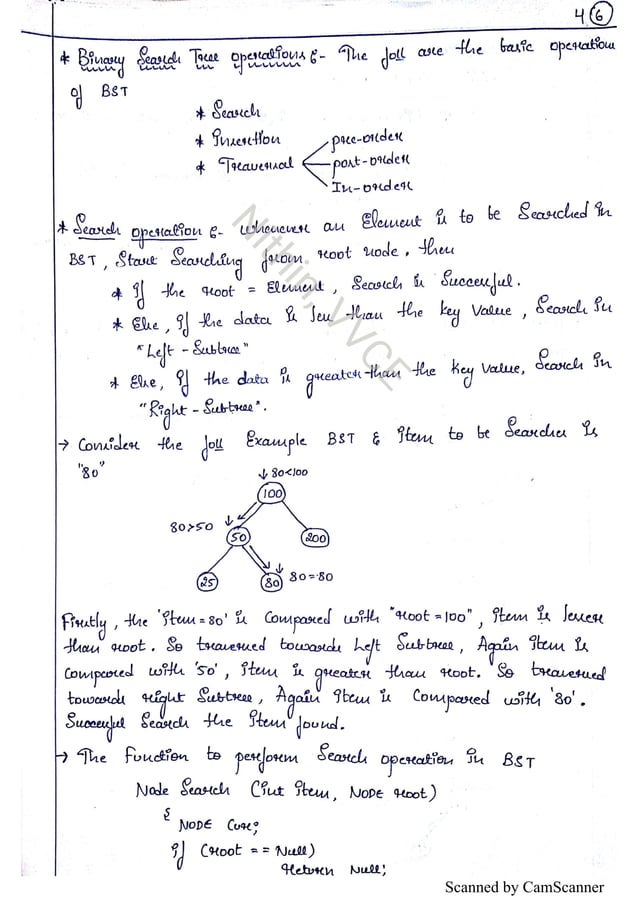 4 6
* Binary Search Tree operations :- The foll are the basic operations
of BST
* Search
* Insertion
* Traversal
pre-order
post-order
In-order
* Search operation :- whenever an Element is to be Searched in
BST, Start Searching from root node. then
* If the root = Element, Search is Successful.
* Else, if the data is less than the key value, Search in
"Left - Subtree"
* Else, if the data is greater than the key value, Search in
"Right - Subtree".
→ Consider the foll Example BST & item to be Searched is
"80"
↓ 80<100
100
80>50
50
200
25
80
80=80
Firstly, the 'item=80' is compared with "root=100", item is lesser
than root. So traversed towards Left Subtree, Again item is
compared with '50', item is greater than root. So traversed
towards right Subtree, Again item is compared with '80'.
Successful Search the item found.
→ The function to perform Search operation in BST
Node Search (int item, NODE root)
{
NODE Cur;
if (root == Null)
return Null;
Nithin, VVCE
Scanned by CamScanner